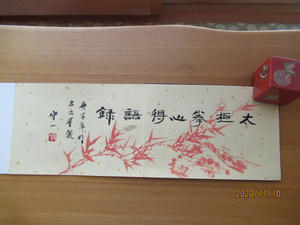 太極拳心得語録
庚子年於
名古屋寓
守一
2020/11/10